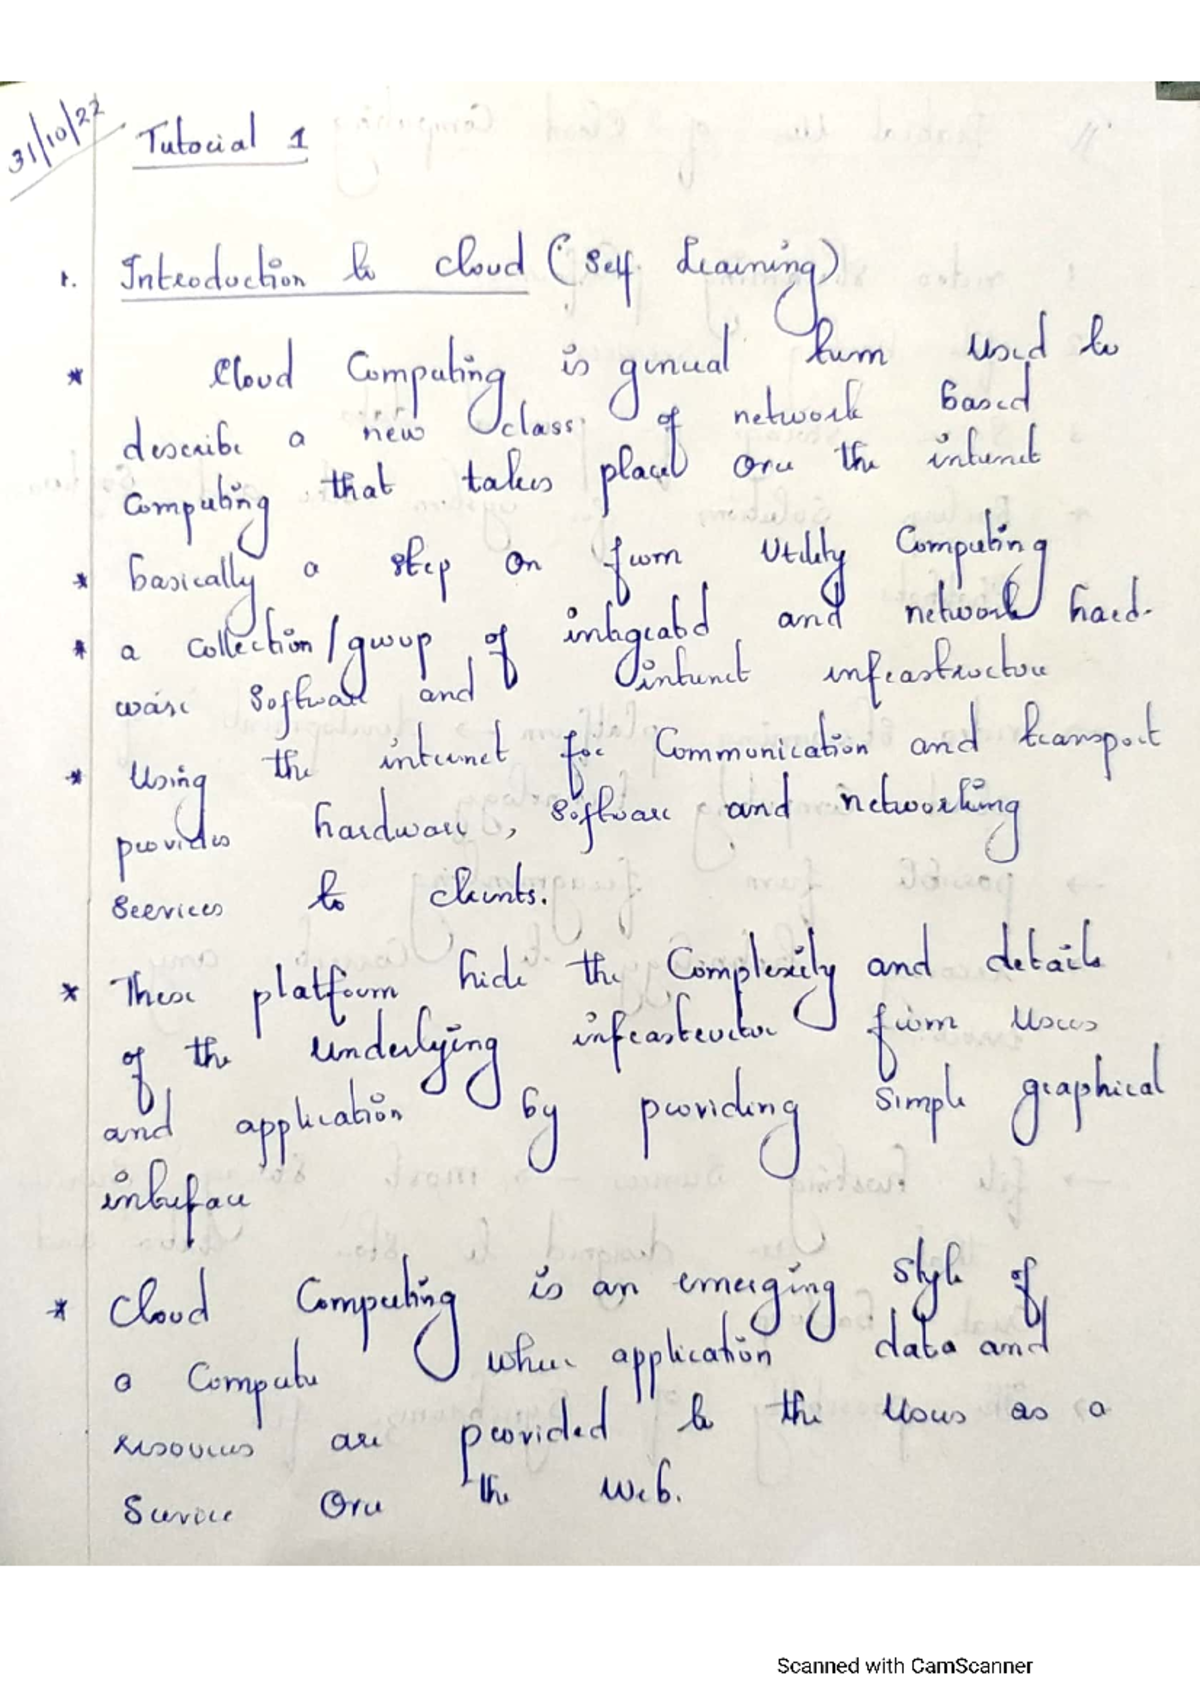 31/10/22
Tutorial 1
1. Introduction to cloud (: Self Learning)
* Cloud Computing is general term used to
describe a new class of network based
Computing that takes place over the internet
* basically a step on from Utility Computing
* a collection/group of integrated and network hard-
ware software and internet infrastructure
* Using the internet for Communication and transport
provides hardware, software and networking
services to clients.
* These platform hide the Complexity and details
of the underlying infrastructure from users
and application by providing simple graphical
interface
* Cloud Computing is an emerging style of
a Compute where application data and
resources are provided to the users as a
Service Over the Web.
Scanned with CamScanner